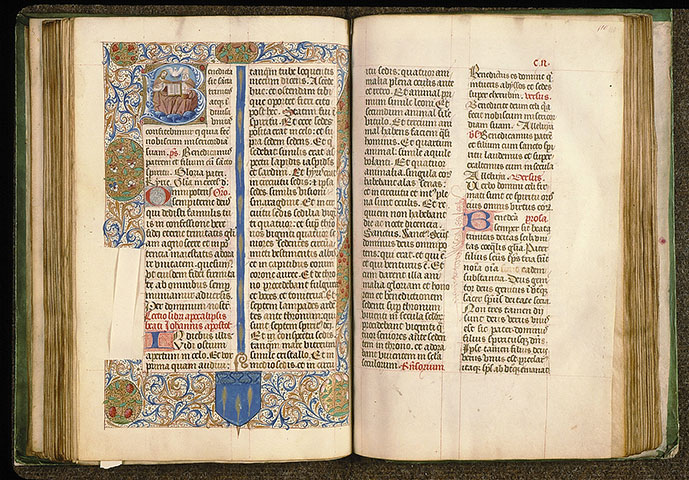 enedicta
sit sācta
trinitas
atqz i
diuisa
vnitas
confitebimur ei quia fecit
nobiscum misericordia
suam. ps. Benedicamus
patrem et filium cū sācto
spiritu. Gloria patri.
Kyrie. Glīa in excels̄ d.
Omnipotens Oro
sempiterne deus
qui dedisti famulis tu
is in confessione vere
fidei eterne trinitatis glī
am agnoscere et in po
tencia maiestatis adorar
vnitatem. quesumꝰ
vt eiusdem fidei firmita
te ab omnibus semp
muniamur aduersis.
Per dominum nostr̄
Lectio libri apocalipsis
beati Johannis apostoli
In diebus illis
Vidi ostium
apertum in celo. Et vox
prima quam audiui:
tanqm̄ tube loquentis
mecum dicens. Ascede
huc: et ostendam tibi
que oportet fieri cito
post hec. Statim fui ī
spiritu. Et ecce sedes
posita erat in celo: et su
pra sedem sedens. Et q̄
sedebat similis erat as
pectui lapidis iaspidis
et sardini. Et hyris erat
in circuitu sedis: ipsa
sedes similis visioni
smaragdine. Et in circū
itu sedis sedilia vigi
ti quatuor: et sup thro
nos viginti quatuor se
niores sedentes circūa
micti vestimentis albis
et in capitibus eorum
corone auree. Et de thro
no procedebant fulgura
et voces et tonitrua. Et
septem lampades ardē
tes ante thronum: que
sunt septem spirit9 dei.
Et in conspectu sedis
tanqm̄ mare vitreum
simile cristallo. Et in
medio sedis: et in circui
tu sedis: quatuor ani
malia plena oculis ante
et retro. Et animal pri
mum simile leoni. Et
secundum animal si
le vitulo. Et tercium ani
mal habens faciem q̄si
hominis. Et quartum
animal: simile aquile
volanti. Et quatuor
animalia. singula eor
habebant alas senas:
et in circuitu et intꝰ ple
na sunt oculis. Et re
quiem non habebant
die ac nocte dicencia.
Sanctus. Sanctꝰ. Sancꝰ
dominus deus omnipo
tens: qui erat: et qui ē:
et qui venturus ē. Et
cum darent illa ani
malia gloriam et hono
rem et benedictionem
sedenti sup thronum
viuenti in secula seculoꝝ:
procedebant viginti q̄
tuor seniores ante seden
tem in throno. et adora
bant viuentem in secla
seculorum.
C.ii.
Benedictus es domine q̄
intueris abissos et sedes
super cherubin. versus.
Benedicite deum celi q̄a
fecit nobiscum misericor
diam suam. Alleluya
vs̄ Benedicamus patrē
et filium cum sancto spi
ritu laudemus et super
exaltemus eum in secula
Alleluya. versus.
Verbo domini celi fir
mati sunt: et spiritu oris
eius omnis virtus eor.
Benedicta prosa.
semper sit beata
trinitas deitas scilicet vni
tas coeqlis glīa. Pater
filius scūs spūs tria sūt
noīa oīa eadem
substancia. Deus geni
tor deus genitus ī vtroqz
sacer spūs deitate socia.
Non tres tamen dij
sunt deus verus vnus
est sic pater dominus
filius spiritusqz scūs.